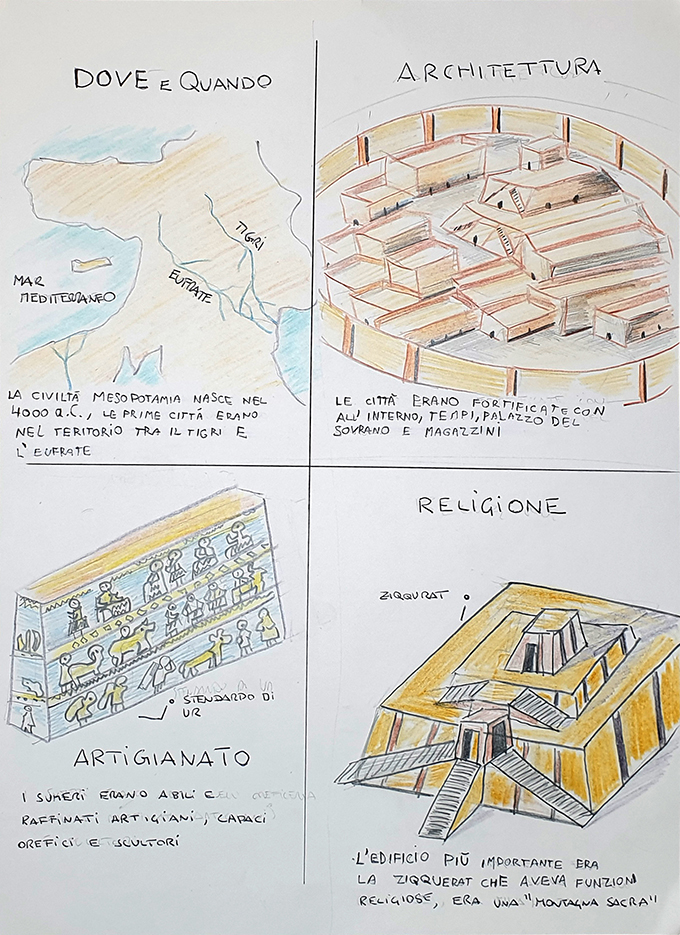 DOVE E QUANDO
TIGRI
EUFRATE
MAR
MEDITERRANEO
LA CIVILTÀ MESOPOTAMIA NASCE NEL
4000 a.C., LE PRIME CITTÁ ERANO
NEL TERITORIO TRA IL TIGRI E
L'EUFRATE
ARCHITETTURA
LE CITTÁ ERANO FORTIFICATE CON
ALL'INTERNO, TEMPI, PALAZZO DEL
SOVRANO E MAGAZZINI
STENDARDO DI
UR
ARTIGIANATO
I SUMERI ERANO ABILI E
RAFFINATI ARTIGIANI, CAPACI
OREFICI E SCULTORI
RELIGIONE
ZIQQURAT
L'EDIFICIO PIÙ IMPORTANTE ERA
LA ZIQQUERAT CHE AVEVA FUNZIONI
RELIGIOSE, ERA UNA "MONTAGNA SACRA"